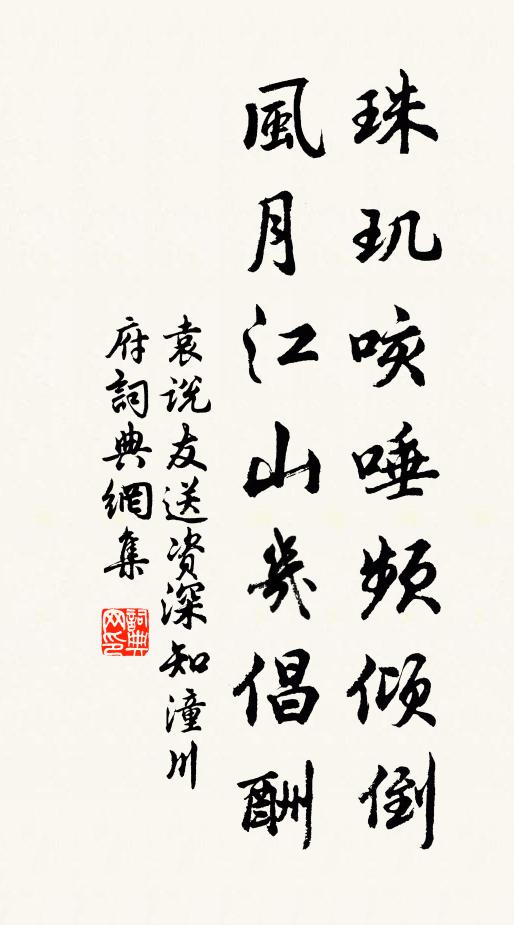 珠玑咳唾频倾倒
風月江山幾倡酬
袁说友送资深知潼川
府詞典網集
詞典网印